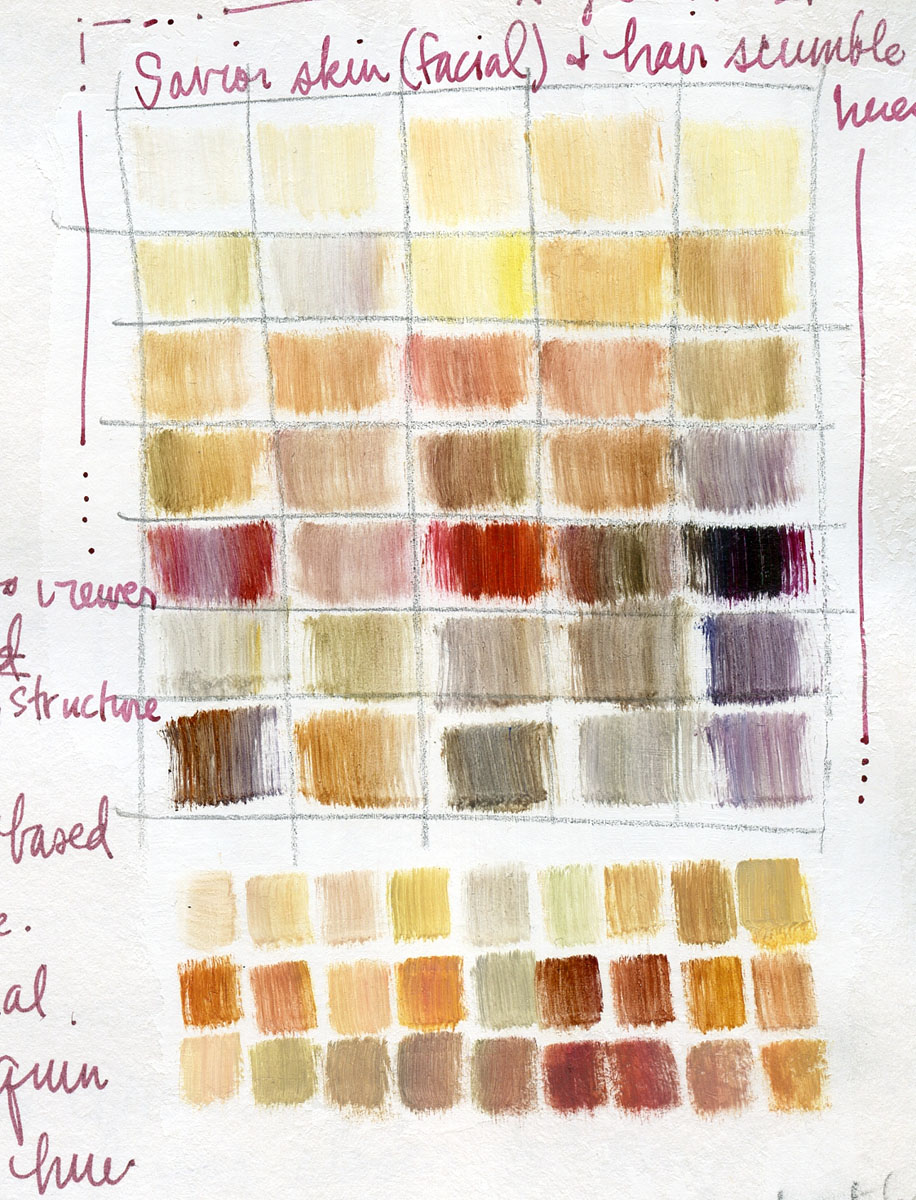 Savior skin (facial) & hair scumble
hues
viewer
&
structure
based
e.
al.
hue